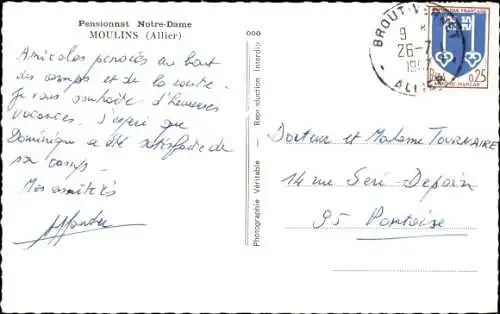 Pensionnat Notre-Dame
MOULINS (Allier)
Amicales pensées au bout
des camps et de la route.
Je vous souhaite d'heureuses
vacances. J'espère que
Dominique a été satisfaite de
son camp.
Mes amitiés
Photographie Véritable — Reproduction Interdite
BROUT-V
9
26-7
19
ALLIER
REPUBLIQUE FRANÇAISE
0,25
MONT-DE-MARSAN
Docteur et Madame TOURNAIRE
14 rue Seré-Depoin
95 Pontoise